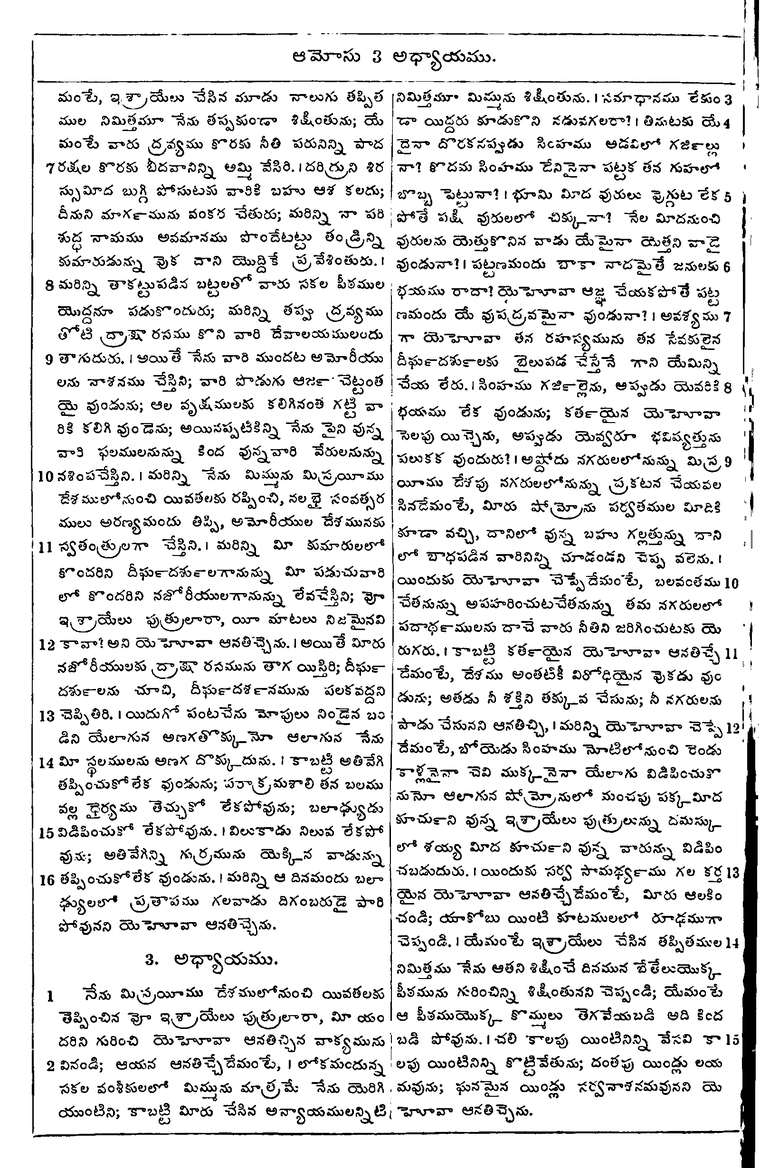 ఆమోసు 3 అధ్యాయము.
మంటే, ఇశ్రాయేలు చేసిన మూడు నాలుగు తప్పిత
ముల నిమిత్తమూ నేను తప్పకుండా శిక్షింతును; యే
మంటే వారు ద్రవ్యము కొరకు నీతి పరునిన్ని పాద
7 రక్షల కొరకు బీదవానిన్ని అమ్మి వేసిరి. । దరిద్రుని శిర
స్సుమీద బుగ్గి పోసుటకు వారికి బహు ఆశ కలదు;
దీనుని మార్గమును వంకర చేతురు; మరిన్ని నా పరి
శుద్ధ నామము అవమానము పొందేటట్టు తండ్రిన్ని
కుమారుడున్ను వొక దాని యొద్దికే ప్రవేశింతురు. ।
8 మరిన్ని తాకట్టుపడిన బట్టలతో వారు సకల పీఠముల
యొద్దనూ పడుకొందురు; మరిన్ని తప్పు ద్రవ్యము
తోటి ద్రాక్షా రసము కొని వారి దేవాలయములందు
9 తాగుదురు. । అయితే నేను వారి ముందట అమోరీయు
లను నాశనము చేస్తిని; వారి పొడుగు ఆర్జ చెట్టంత
యై వుండును; ఆల వృక్షములకు కలిగినంత గట్టి వా
రికి కలిగి వుండెను; అయినప్పటికిన్ని నేను పైని వున్న
వారి ఫలములనున్ను కింద వున్నవారి వేరులనున్ను
10 నశింపచేస్తిని. । మరిన్ని నేను మిమ్మును మిస్రయీము
దేశములోనుంచి యివతలకు రప్పించి, నలభై సంవత్సర
ములు అరణ్యమందు తిప్పి, అమోరీయుల దేశమునకు
11 స్వతంత్రులగా చేస్తిని. । మరిన్ని మీ కుమారులలో
కొందరిని దీర్ఘదర్శులగానున్ను మీ పడుచువారి
లో కొందరిని నజోరీయులగానున్ను లేవచేస్తిని; వోా
ఇశ్రాయేలు పుత్రులారా, యీ మాటలు నిజమైనవి
12 కావా? అని యెహోవా ఆనతిచ్చెను. । అయితే మీరు
నజోరీయులకు ద్రాక్షా రసమును తాగ యిస్తిరి; దీర్ఘ
దర్శులను చూచి, దీర్ఘదర్శనమును పలకవద్దని
13 చెప్పితిరి. । యిదుగో పంటచేను మోపులు నిండైన బం
డిని యేలాగున అణగతొక్కునో ఆలాగున నేను
14 మీ స్థలములను అణగ దొక్కుదును. । కాబట్టి అతివేగి
తప్పించుకోలేక వుండును; పరాక్రమశాలి తన బలము
వల్ల ధైర్యము తెచ్చుకో లేకపోవును; బలాఢ్యుడు
15 విడిపించుకో లేకపోవును. । విలుకాడు నిలువ లేకపో
వును; అతివేగిన్ని గుర్రమును యెక్కిన వాడున్ను
16 తప్పించుకోలేక వుండును. । మరిన్ని ఆ దినమందు బలా
ఢ్యులలో ప్రతాపము గలవాడు దిగంబరుడై పారి
పోవునని యెహోవా ఆనతిచ్చెను.
3. అధ్యాయము.
1 నేను మిస్రయీము దేశములోనుంచి యివతలకు
తెప్పించిన వోా ఇశ్రాయేలు పుత్రులారా, మీ యం
దరిని గురించి యెహోవా ఆనతిచ్చిన వాక్యమును
2 వినండి; ఆయన ఆనతిచ్చేదేమంటే, । లోకమందున్న
సకల వంశీకులలో మిమ్మును మాత్రమే నేను యెరిగి
యుంటిని; కాబట్టి మీరు చేసిన అన్యాయములన్నిటి
నిమిత్తమూ మిమ్మును శిక్షింతును. । సమాధానము లేకుం 3
డా యిద్దరు కూడుకొని నడువగలరా? । తినుటకు యే 4
దైనా దొరకనప్పడు సింహము అడవిలో గర్జిల్లు
నా? కొదమ సింహము దేనినైనా పట్టక తన గుహలో
బొబ్బ పెట్టునా? । భూమి మీద వురులు వొగ్గుట లేక 5
పోతే పక్షి వురులలో చిక్కునా? నేల మీదనుంచి
వురులను యెత్తుకొనిన వాడు యేమైనా యెత్తని వాడై
వుండునా? । పట్టణమందు బాకా నాదమైతే జనులకు 6
భయము రాదా? యెహోవా ఆజ్ఞ చేయకపోతే పట్ట
ణమందు యే వుపద్రవమైనా వుండునా? । అవశ్యము 7
గా యెహోవా తన రహస్యమును తన సేవకులైన
దీర్ఘదర్శులకు బైలుపడ చేస్తేనే గాని యేమిన్ని
చేయ లేరు. । సింహము గర్జిల్లెను, అప్పుడు యెవరికి 8
భయము లేక వుండును; కర్తయైన యెహోవా
సెలవు యిచ్చెను, అప్పుడు యెవ్వరూ భవిష్యత్తును
పలుకక వుందురు? । అష్డోదు నగరులలోనున్ను మిస్ర 9
యీము దేశపు నగరులలోనున్ను ప్రకటన చేయవల
సినదేమంటే, మీరు షోమ్రోను పర్వతముల మీదికి
కూడా వచ్చి, దానిలో వున్న బహు గల్లత్తున్ను దాని
లో బాధపడిన వారినిన్ని చూడండని చెప్ప వలెను. ।
యిందుకు యెహోవా చెప్పేదేమంటే, బలవంతము 10
చేతనున్ను అపహరించుటచేతనున్ను తమ నగరులలో
పదార్థములను దాచే వారు నీతిని జరిగించుటకు యె
రుగరు. । కాబట్టి కర్తయైన యెహోవా ఆనతిచ్చే 11
దేమంటే, దేశము అంతటికీ విరోధియైన వొకడు వుం
డును; అతడు నీ శక్తిని తక్కువ చేసును; నీ నగరులను
పాడు చేసునని ఆనతిచ్చి, । మరిన్ని యెహోవా చెప్పే 12
దేమంటే, బోయెడు సింహము నోటిలోనుంచి రెండు
కాళ్లనైనా చెవి ముక్కనైనా యేలాగు విడిపించుకొ
నునో ఆలాగున షోమ్రోనులో మంచపు పక్కమీద
కూర్చుని వున్న ఇశ్రాయేలు పుత్రులున్ను దమస్కు
లో శయ్య మీద కూర్చుని వున్న వారున్ను విడిపిం
చబడుదురు. । యిందుకు సర్వ సామర్థ్యము గల కర్త 13
యైన యెహోవా ఆనతిచ్చేదేమంటే, మీరు ఆలకిం
చండి; యాకోబు యింటి కూటములలో రూఢముగా
చెప్పండి. । యేమంటే ఇశ్రాయేలు చేసిన తప్పితముల 14
నిమిత్తము నేను ఆతని శిక్షించే దినమున బేతేలుయొక్క
పీఠమును గురించిన్ని శిక్షింతునని చెప్పండి; యేమంటే
ఆ పీఠముయొక్క కొమ్ములు తెగవేయబడి అది కింద
బడి పోవును. । చలి కాలపు యింటినిన్ని వేసవి కా 15
లపు యింటినిన్ని కొట్టివేతును; దంతపు యిండ్లు లయ
మవును; ఘనమైన యిండ్లు సర్వనాశనమవునని యె
హోవా ఆనతిచ్చెను.